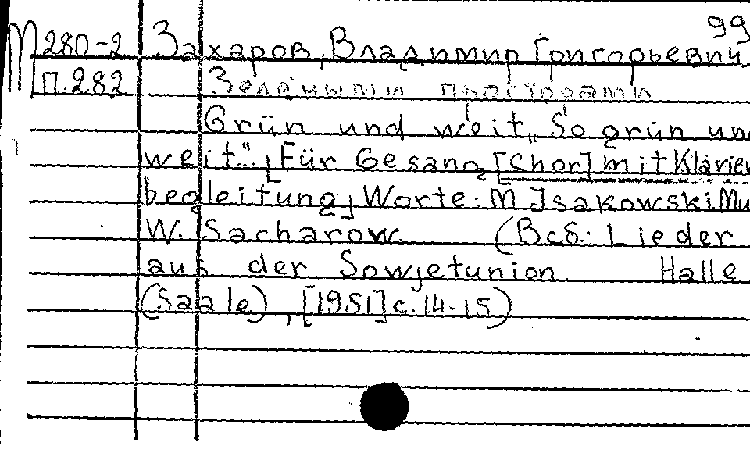 99
М280-2 Захаров, Владимир Григорьевич
П.282 Зелеными просторами
Grün und weit „So grün un
weit“, [Für Gesang [Chor] mit Klavier
begleitung] Worte: M. Isakowski Mu
W. Sacharow. (В сб: Lieder
aus der Sowjetunion. Halle
(Saale), [1951] с.14-15)